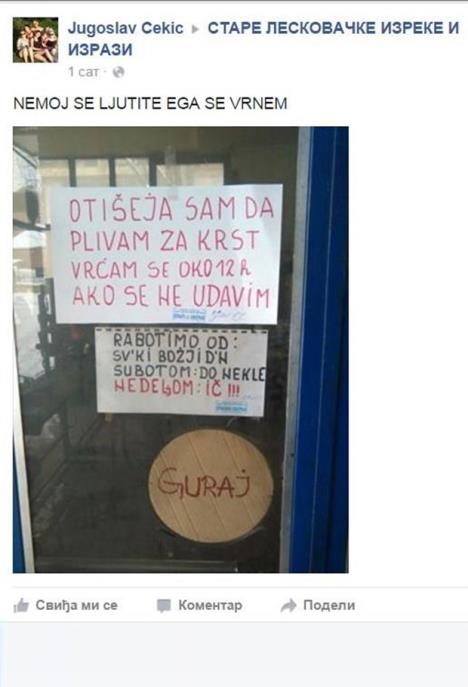 Jugoslav Cekic ▸ СТАРЕ ЛЕСКОВАЧКЕ ИЗРЕКЕ И
ИЗРАЗИ
1 сат ·
NEMOJ SE LJUTITE EGA SE VRNEM
OTIŠEJA SAM DA
PLIVAM ZA KRST
VRĆAM SE OKO 12 h
AKO SE NE UDAVIM
RABOTIMO OD:
SV'KI BOŽJI D'N
SUBOTOM: DO NEKLE
NEDEĻOM: IČ !!!
GURAJ
Свиђа ми се
Коментар
Подели